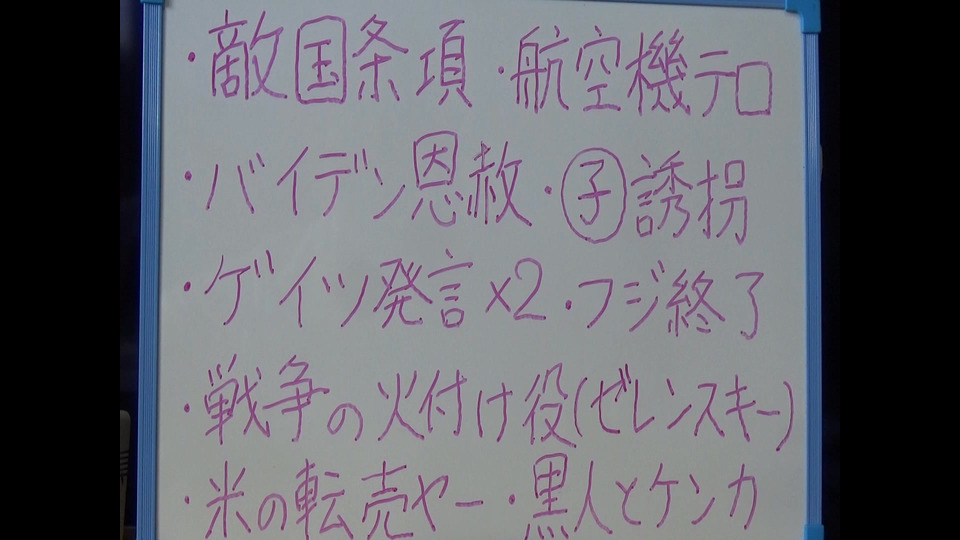 ・敵国条項 ・航空機テロ
・バイデン恩赦 ・㋙誘拐
・ゲイツ発言×2 ・フジ終了
・戦争の火付け役(ゼレンスキー)
・米の転売ヤー ・黒人とケンカ